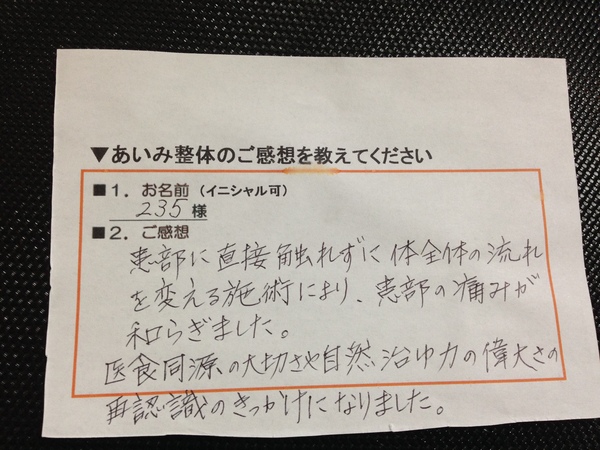 ▼あいみ整体のご感想を教えてください
■1．お名前（イニシャル可）
235 様
■2．ご感想
患部に直接触れずに体全体の流れ
を変える施術により、患部の痛みが
和らぎました。
医食同源の大切さや自然治ゆ力の偉大さの
再認識のきっかけになりました。